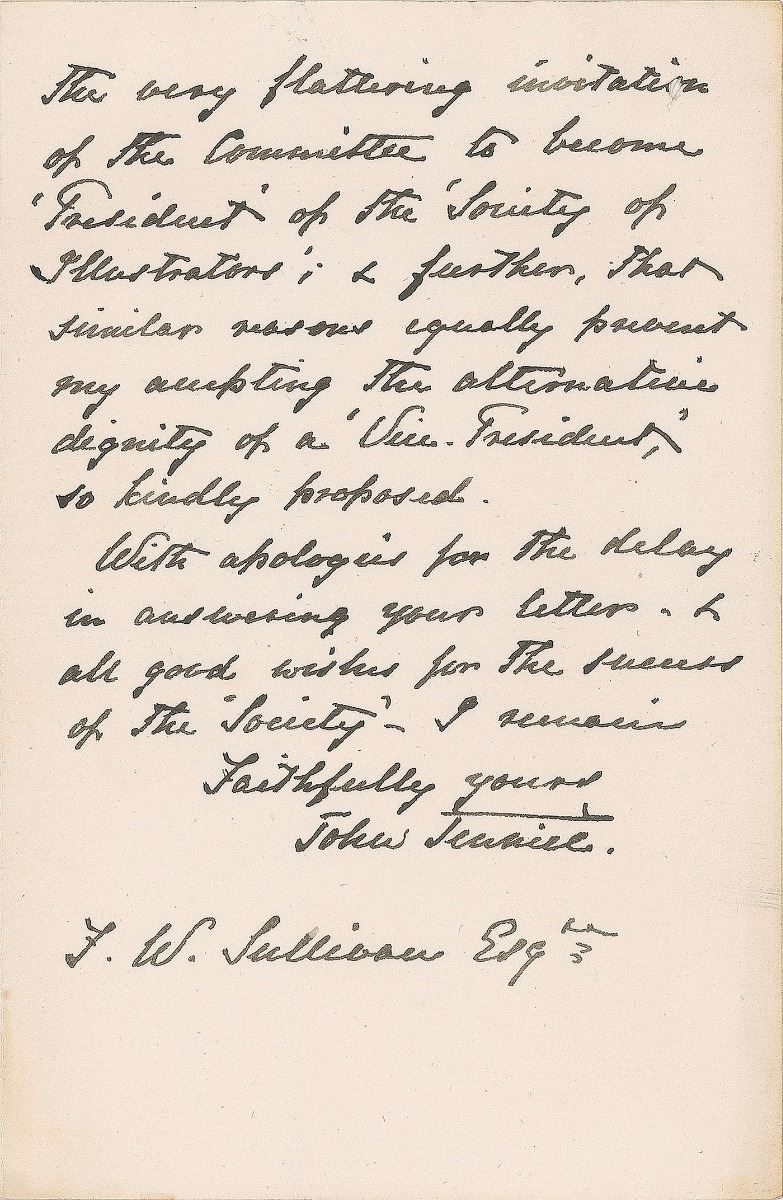 The very flattering invitation
of the Committee to become
'President' of the 'Society of
Illustrators'; & further, that
similar reasons equally prevent
my accepting the alternative
dignity of a 'Vice-President,'
so kindly proposed.
With apologies for the delay
in answering your letter - &
all good wishes for the success
of the 'Society' - I remain
Faithfully yours
John Tenniel.
F. W. Sullivan Esqre